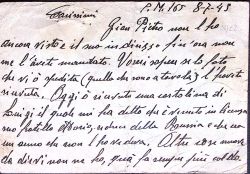 P.M. 165 8-7-43
Carissimi
Gian Pietro non l'ho
ancora visto e il suo indirizzo fin'ora non
me l'avete mandato. Vorrei sapere se le foto
che vi ò spedito (quelle che sono a tavola) l'avete
ricevute. Oggi ò ricevuto una cartolina di
Luigi il quale mi ha detto che è venuto in licenza
suo fratello che torna della Russia e che
un anno che non l'ho vedeva. Altre cose nuove
da dirvi non ne ho, qua fa sempre più caldo